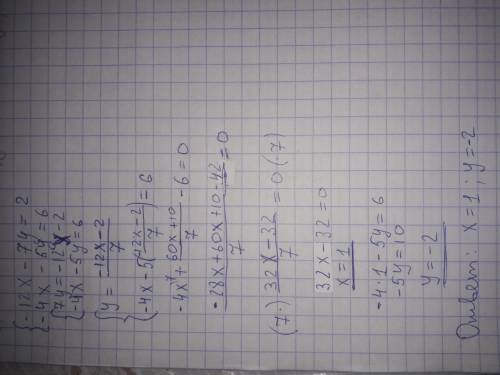 {-12x-7y=2
{-4x-5y=6
{7y=-12x-2
{-4x-5y=6
{y = (-12x-2)/7
{-4x-5((-12x-2)/7)=6
-4x + (60x+10)/7 -6=0
(-28x+60x+10-42)/7=0
(7·) (32x-32)/7 =0 (·7)
32x-32=0
x=1
-4·1-5y=6
-5y=10
y=-2
Ответ: x=1; y=-2